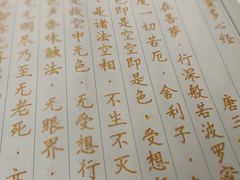 多心经 唐三
在菩萨·行深般若波罗蜜
一切苦厄·舍利子·
色即是空空即是色·受想
是诸法空相 不生不灭
故空中无色·无受想行
香味触法·无眼界·
明尽乃至无老死·亦